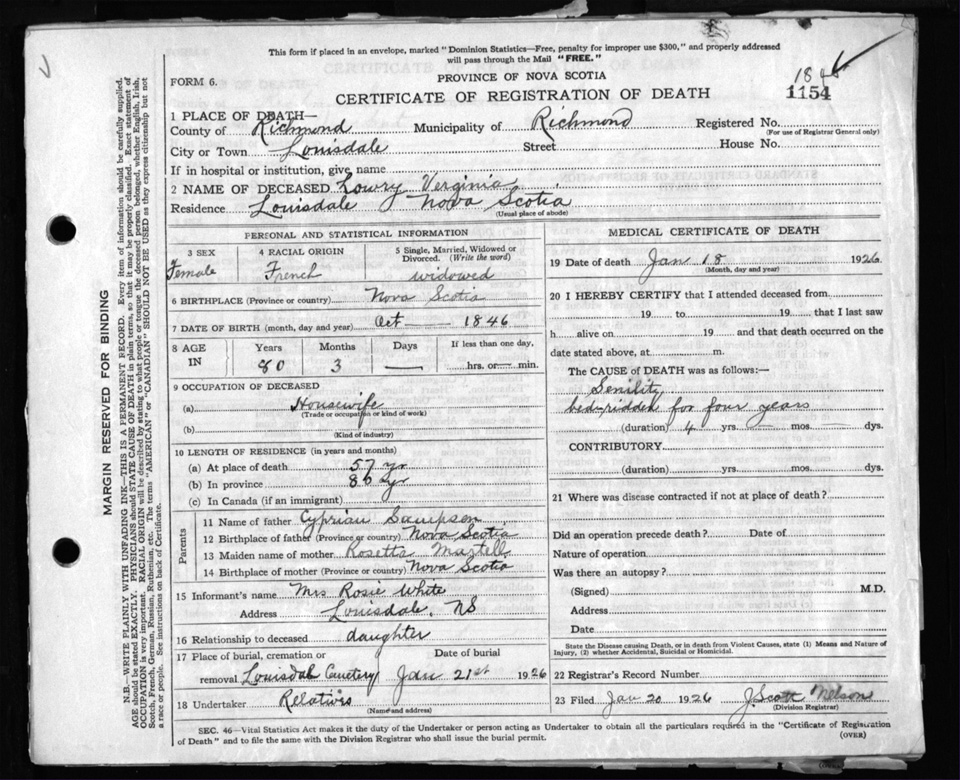 This form if placed in an envelope, marked "Dominion Statistics—Free, penalty for improper use $300," and properly addressed
will pass through the Mail "FREE."
FORM 6.
PROVINCE OF NOVA SCOTIA
CERTIFICATE OF REGISTRATION OF DEATH
1154
1 PLACE OF DEATH—
County of Richmond Municipality of Richmond Registered No.
(For use of Registrar General only)
City or Town Louisdale Street House No.
If in hospital or institution, give name
2 NAME OF DECEASED Lowry Verginia
Residence Louisdale Nova Scotia
(Usual place of abode)
PERSONAL AND STATISTICAL INFORMATION
3 SEX 4 RACIAL ORIGIN 5 Single, Married, Widowed or Divorced. (Write the word)
Female French widowed
6 BIRTHPLACE (Province or country) Nova Scotia
7 DATE OF BIRTH (month, day and year) Oct — 1846
8 AGE IN Years Months Days If less than one day,
80 3 — hrs. or min.
9 OCCUPATION OF DECEASED
(a) Housewife
(Trade or occupation or kind of work)
(b)
(Kind of industry)
10 LENGTH OF RESIDENCE (in years and months)
(a) At place of death 57 yr
(b) In province 80 yr
(c) In Canada (if an immigrant)
Parents
11 Name of father Cyprian Sampson
12 Birthplace of father (Province or country) Nova Scotia
13 Maiden name of mother Rosetta Martell
14 Birthplace of mother (Province or country) Nova Scotia
15 Informant's name Mrs Rosie White
Address Louisdale, NS
16 Relationship to deceased daughter
17 Place of burial, cremation or removal Date of burial
Louisdale Cemetery Jan 21st 1926
18 Undertaker Relatives
(Name and address)
MEDICAL CERTIFICATE OF DEATH
19 Date of death Jan 18 1926
(Month, day and year)
20 I HEREBY CERTIFY that I attended deceased from
19 to 19 that I last saw
h alive on 19 and that death occurred on the
date stated above, at m.
The CAUSE of DEATH was as follows:—
Senility
bed-ridden for four years
(duration) 4 yrs. — mos. — dys.
CONTRIBUTORY
(duration) yrs. mos. dys.
21 Where was disease contracted if not at place of death?
Did an operation precede death? Date of
Nature of operation
Was there an autopsy?
(Signed) M.D.
Address
Date
State the Disease causing Death, or in death from Violent Causes, state (1) Means and Nature of
Injury, (2) whether Accidental, Suicidal or Homicidal.
22 Registrar's Record Number
23 Filed Jan 20 1926 J Scott Nelson
(Division Registrar)
SEC. 46—Vital Statistics Act makes it the duty of the Undertaker or person acting as Undertaker to obtain all the particulars required in the "Certificate of Registration
of Death" and to file the same with the Division Registrar who shall issue the burial permit.
(OVER)
MARGIN RESERVED FOR BINDING
N.B.—WRITE PLAINLY WITH UNFADING INK—THIS IS A PERMANENT RECORD. Every item of information should be carefully supplied.
AGE should be stated EXACTLY. PHYSICIANS should STATE CAUSE OF DEATH in plain terms, so that it may be properly classified. Exact statement of
OCCUPATION is very important. RACIAL ORIGIN will be described by stating to what people or tongue the deceased person belonged, whether English, Irish,
Scotch, French, German, Russian, Ruthenian, etc. The terms "AMERICAN" or "CANADIAN" SHOULD NOT BE USED as they express citizenship but not
a race or people. See instructions on back of Certificate.